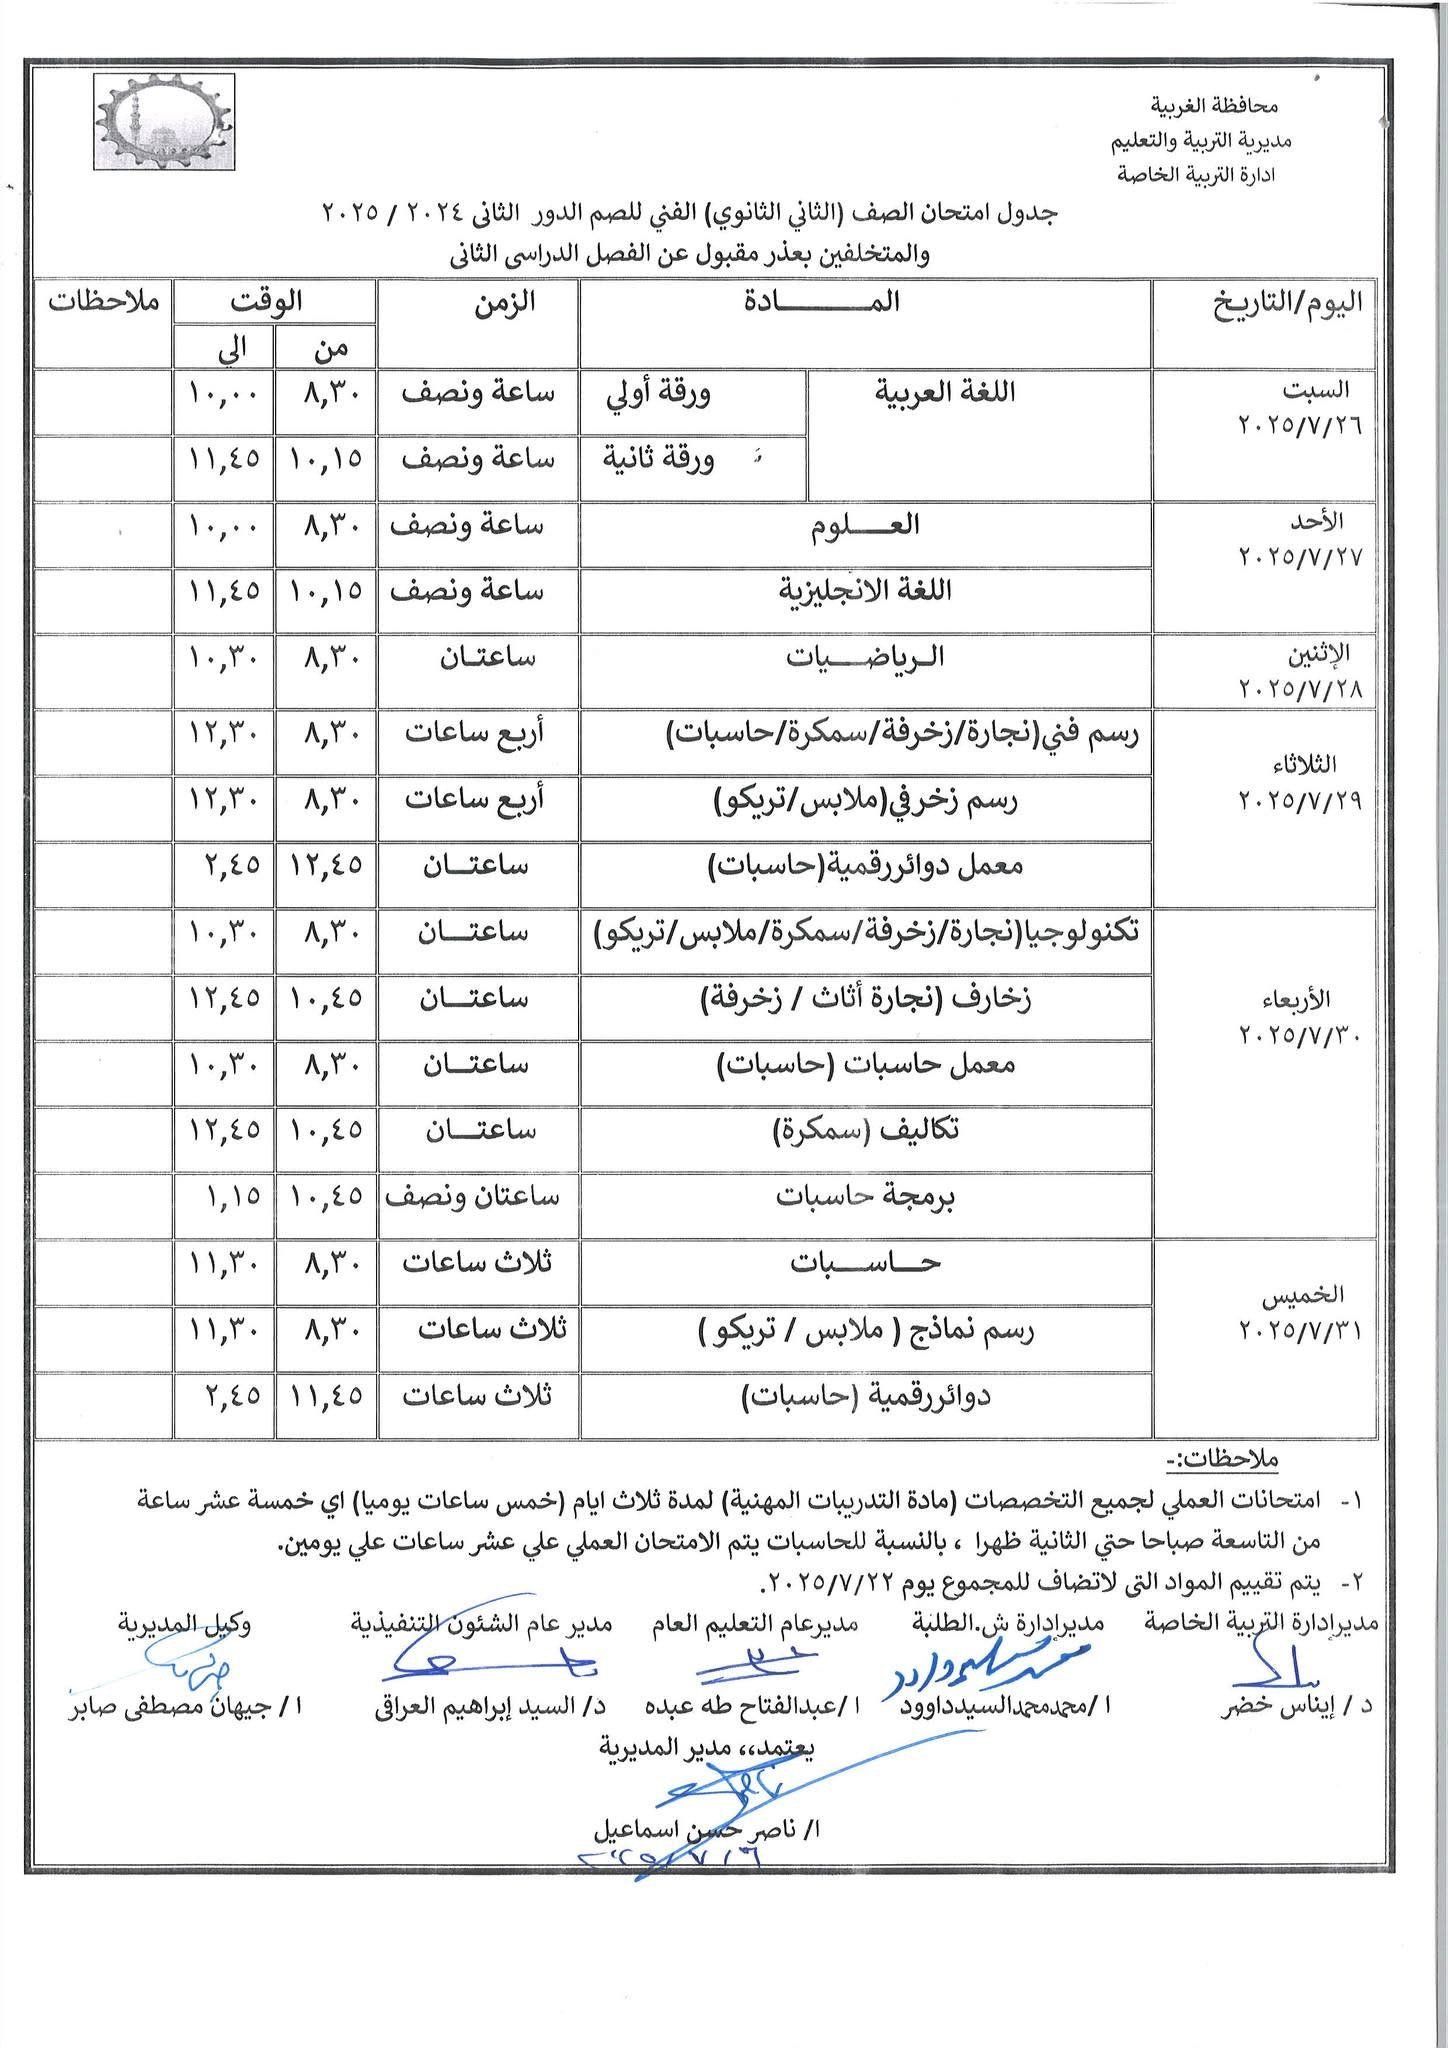 محافظة الغربية
مديرية التربية والتعليم
ادارة التربية الخاصة
جدول امتحان الصف (الثاني الثانوي) الفني للصم الدور الثانى ٢٠٢٤ / ٢٠٢٥
والمتخلفين بعذر مقبول عن الفصل الدراسى الثانى
اليوم/التاريخ المـــــادة الزمن الوقت ملاحظات
من الي
السبت ٢٠٢٥/٧/٢٦ اللغة العربية ورقة أولي ساعة ونصف ٨,٣٠ ١٠,٠٠
ورقة ثانية ساعة ونصف ١٠,١٥ ١١,٤٥
الأحد ٢٠٢٥/٧/٢٧ العـــلوم ساعة ونصف ٨,٣٠ ١٠,٠٠
اللغة الانجليزية ساعة ونصف ١٠,١٥ ١١,٤٥
الإثنين ٢٠٢٥/٧/٢٨ الرياضـــيات ساعتـان ٨,٣٠ ١٠,٣٠
الثلاثاء ٢٠٢٥/٧/٢٩ رسم فني(نجارة/زخرفة/سمكرة/حاسبات) أربع ساعات ٨,٣٠ ١٢,٣٠
رسم زخرفي(ملابس/تريكو) أربع ساعات ٨,٣٠ ١٢,٣٠
معمل دوائررقمية(حاسبات) ساعتـــان ١٢,٤٥ ٢,٤٥
الأربعاء ٢٠٢٥/٧/٣٠ تكنولوجيا(نجارة/زخرفة/سمكرة/ملابس/تريكو) ساعتـــان ٨,٣٠ ١٠,٣٠
زخارف (نجارة أثاث / زخرفة) ساعتـــان ١٠,٤٥ ١٢,٤٥
معمل حاسبات (حاسبات) ساعتـــان ٨,٣٠ ١٠,٣٠
تكاليف (سمكرة) ساعتـــان ١٠,٤٥ ١٢,٤٥
برمجة حاسبات ساعتان ونصف ١٠,٤٥ ١,١٥
الخميس ٢٠٢٥/٧/٣١ حـــاســـبات ثلاث ساعات ٨,٣٠ ١١,٣٠
رسم نماذج ( ملابس / تريكو ) ثلاث ساعات ٨,٣٠ ١١,٣٠
دوائررقمية (حاسبات) ثلاث ساعات ١١,٤٥ ٢,٤٥
ملاحظات:-
١- امتحانات العملي لجميع التخصصات (مادة التدريبات المهنية) لمدة ثلاث ايام (خمس ساعات يوميا) اي خمسة عشر ساعة
من التاسعة صباحا حتي الثانية ظهرا ، بالنسبة للحاسبات يتم الامتحان العملي علي عشر ساعات علي يومين.
٢- يتم تقييم المواد التى لاتضاف للمجموع يوم ٢٠٢٥/٧/٢٢.
مديرإدارة التربية الخاصة مديرإدارة ش.الطلبة مديرعام التعليم العام مدير عام الشئون التنفيذية وكيل المديرية
د / إيناس خضر ا /محمدمحمدالسيدداوود ا /عبدالفتاح طه عبده د/ السيد إبراهيم العراقى ا / جيهان مصطفى صابر
يعتمد،، مدير المديرية
ا/ ناصر حسن اسماعيل